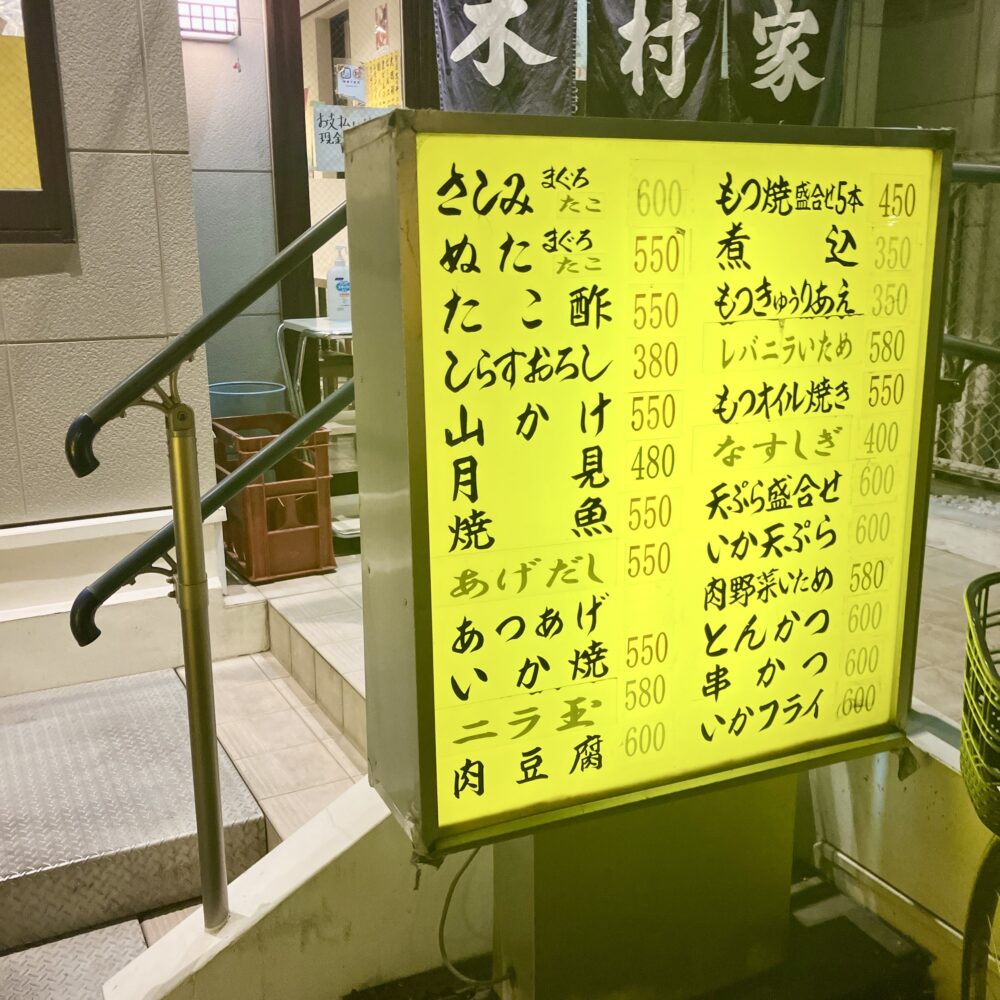 木村家
お支払い
現金
さしみ まぐろ たこ 600
ぬた まぐろ たこ 550
たこ酢 550
しらすおろし 380
山かけ 550
月見 480
焼魚 550
あげだし 550
あつあげ
いか焼 550
ニラ玉 580
肉豆腐 600
もつ焼盛合せ5本 450
煮込 350
もつきゅうりあえ 350
レバニラいため 580
もつオイル焼き 550
なすしぎ 400
天ぷら盛合せ 600
いか天ぷら 600
肉野菜いため 580
とんかつ 600
串かつ 600
いかフライ 600